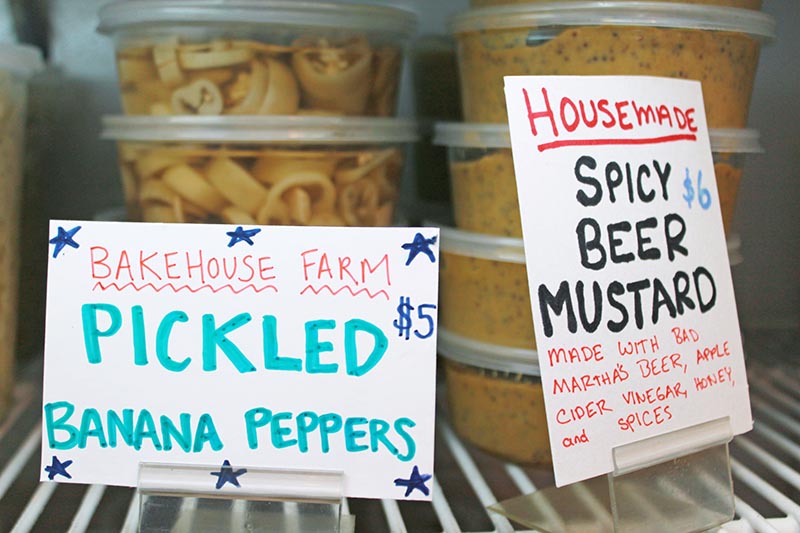 BAKEHOUSE FARM
PICKLED $5
BANANA PEPPERS
HOUSEMADE
SPICY $6
BEER
MUSTARD
MADE WITH BAD
MARTHA'S BEER, APPLE
CIDER VINEGAR, HONEY,
and SPICES